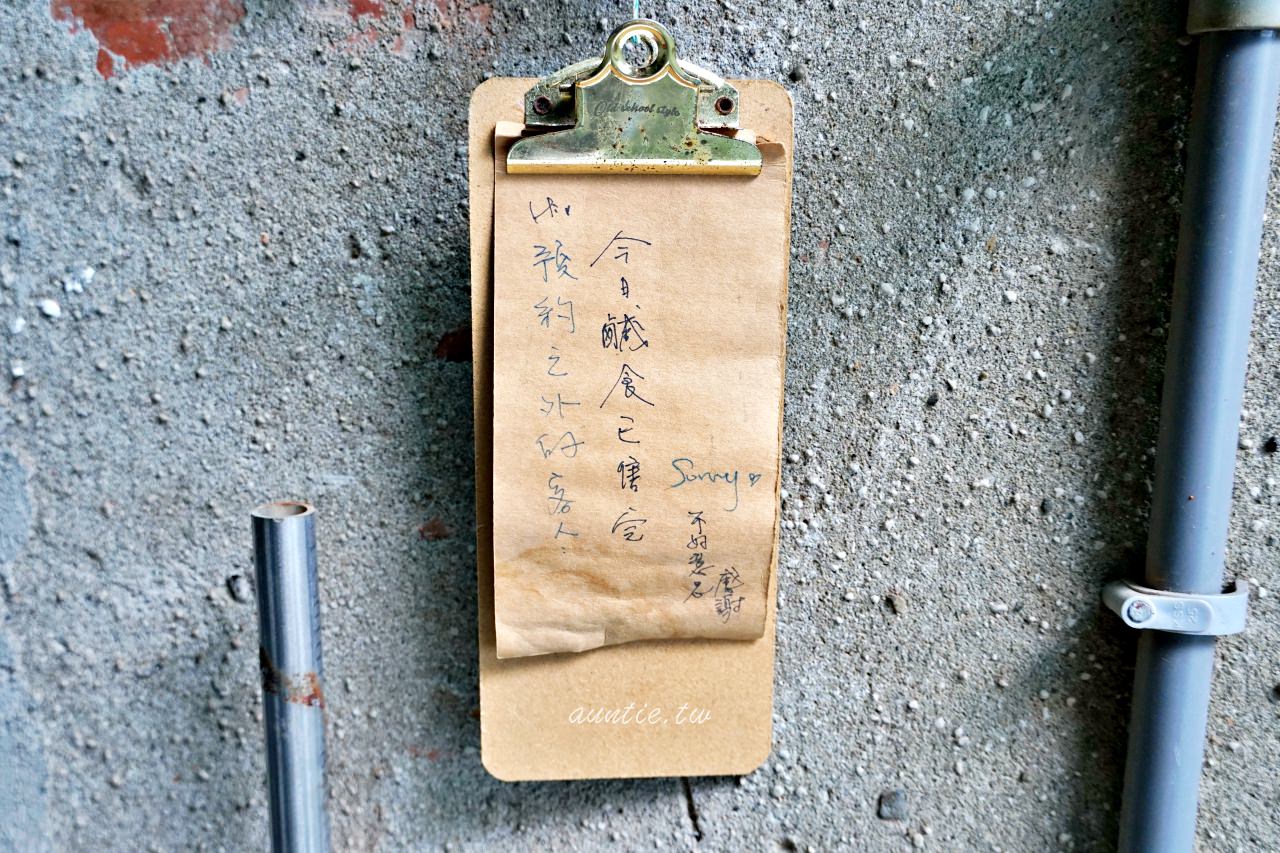 Old school style
預約之外的客人：
今日鹹食已售完
Sorry♡
不好意思
感謝
auntie.tw